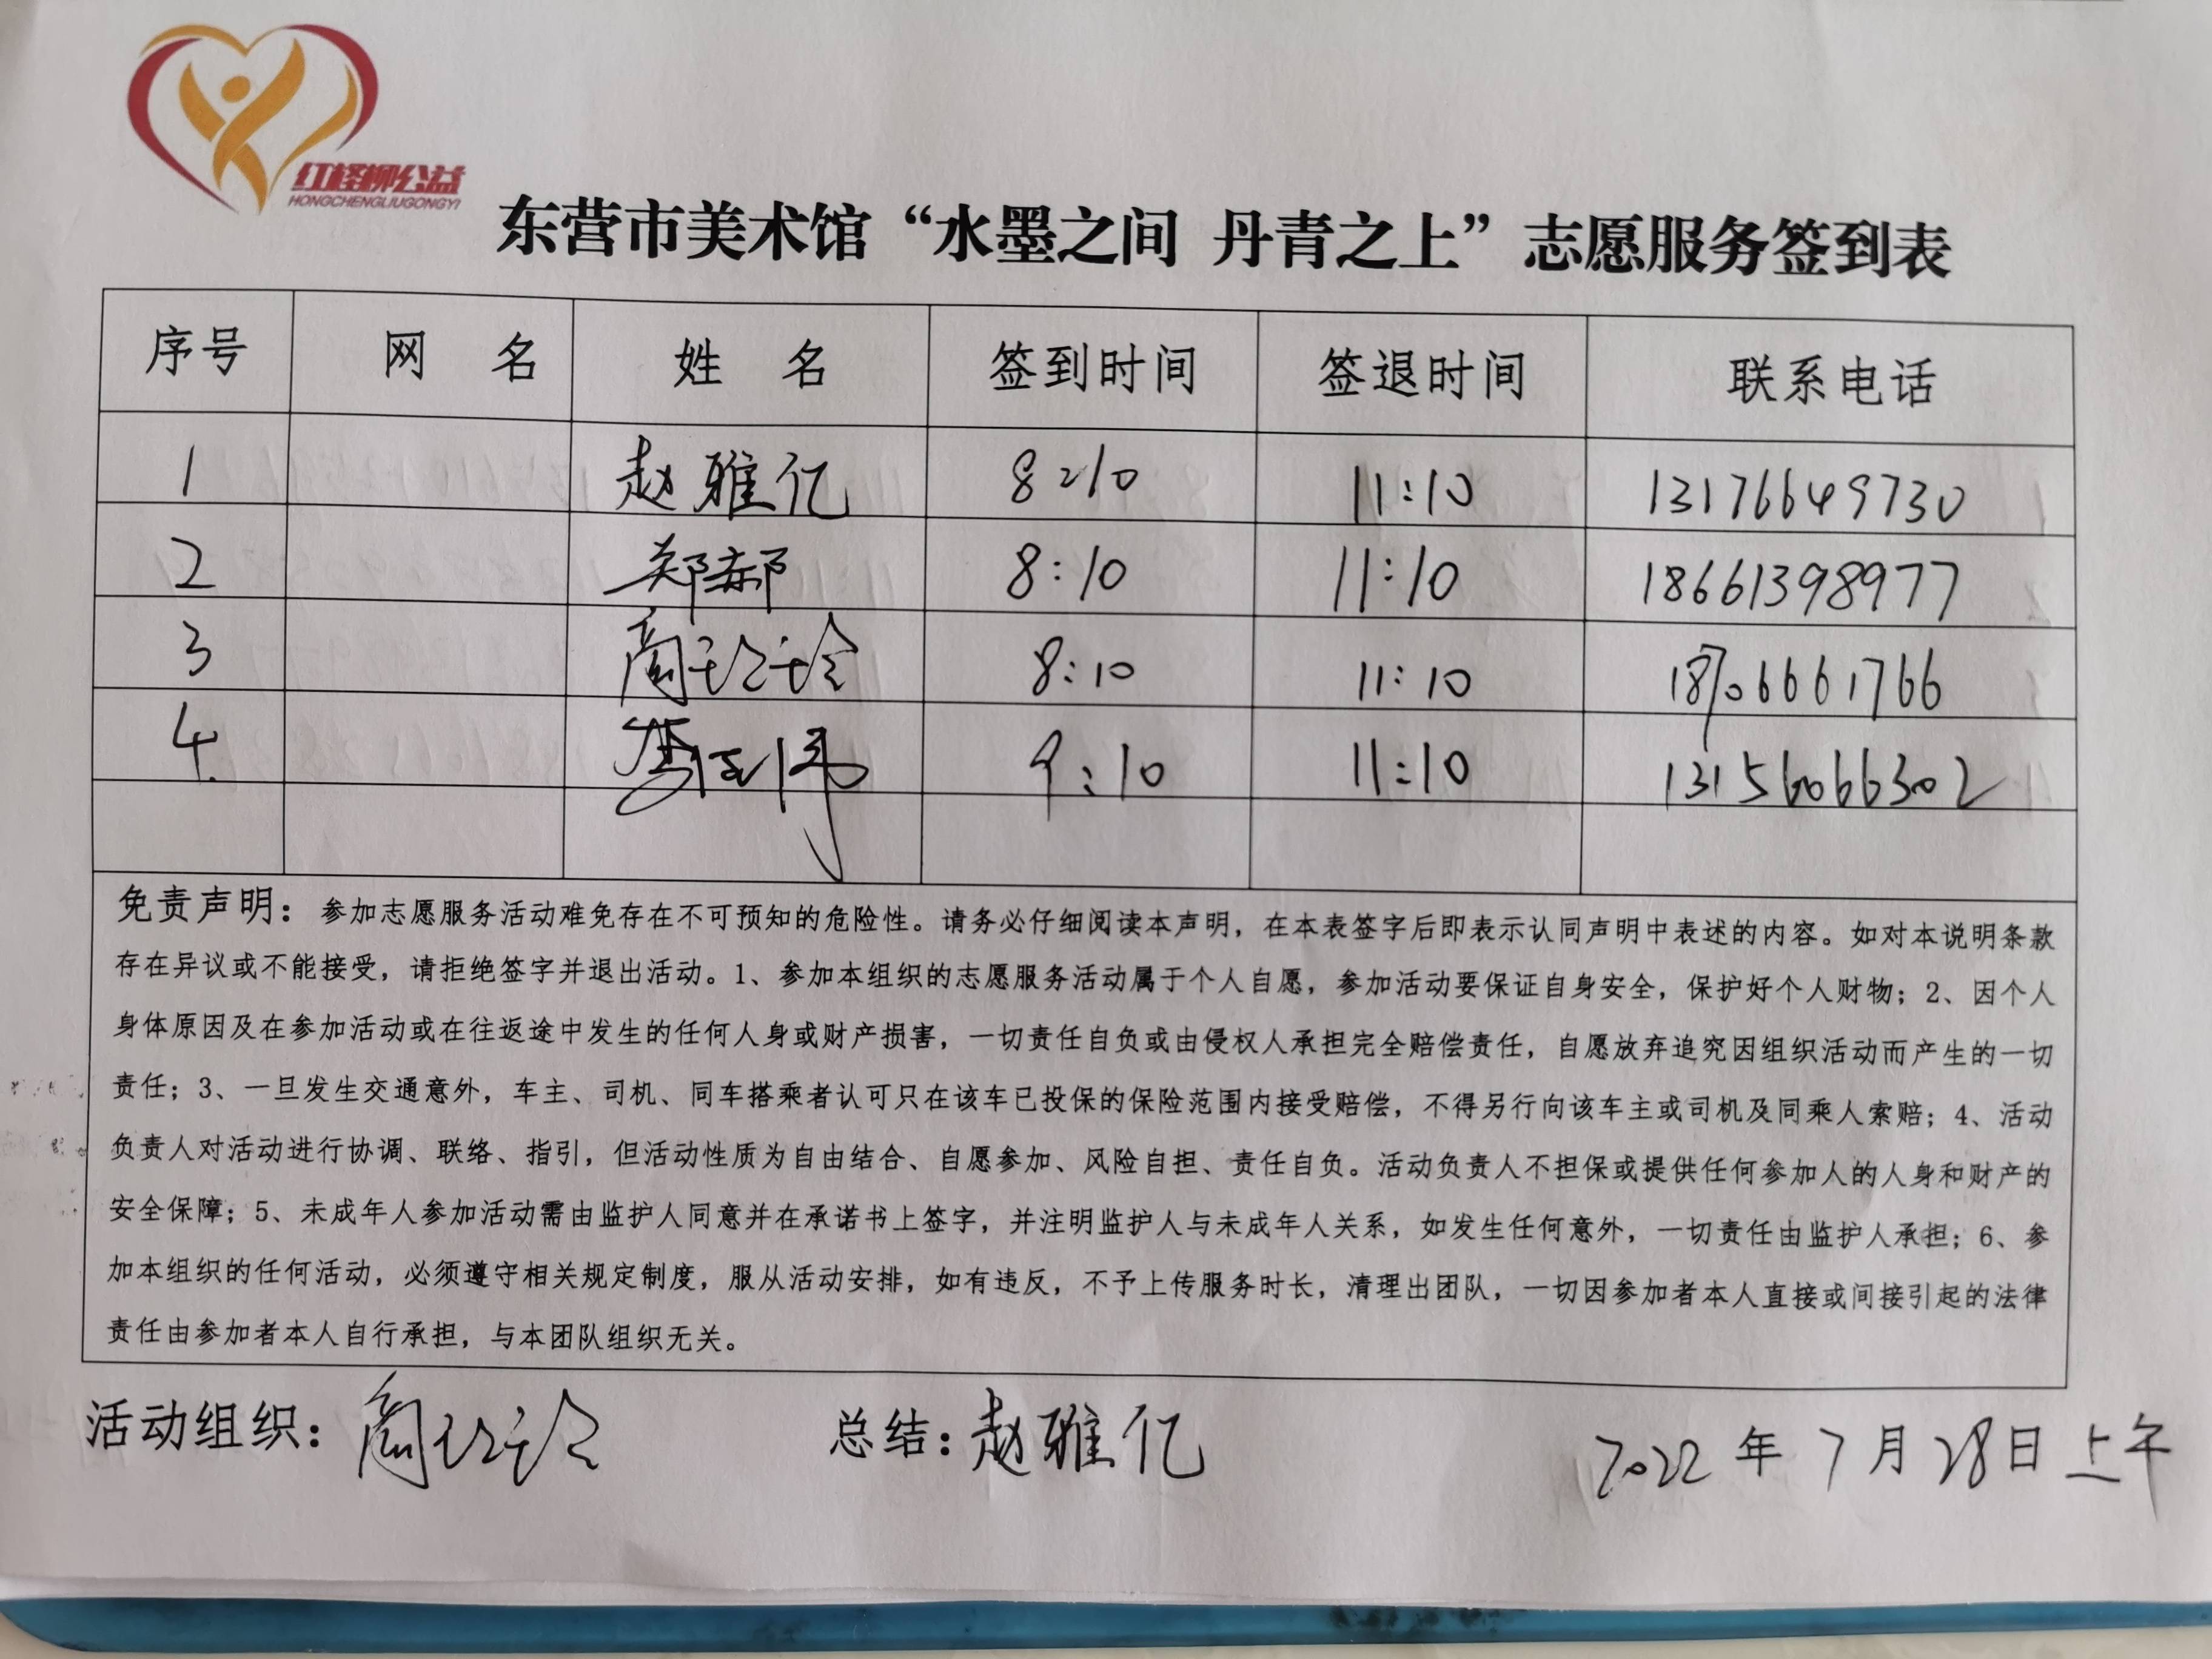 红柽柳公益
HONGCHENGLIUGONGYI
东营市美术馆“水墨之间 丹青之上”志愿服务签到表
序号 网 名 姓 名 签到时间 签退时间 联系电话
1 赵雅亿 8:10 11:10 13176649730
2 郑郝 8:10 11:10 18661398977
3 商玲玲 8:10 11:10 18706661766
4. 9:10 11:10 13156066302
免责声明：参加志愿服务活动难免存在不可预知的危险性。请务必仔细阅读本声明，在本表签字后即表示认同声明中表述的内容。如对本说明条款
存在异议或不能接受，请拒绝签字并退出活动。1、参加本组织的志愿服务活动属于个人自愿，参加活动要保证自身安全，保护好个人财物；2、因个人
身体原因及在参加活动或在往返途中发生的任何人身或财产损害，一切责任自负或由侵权人承担完全赔偿责任，自愿放弃追究因组织活动而产生的一切
责任；3、一旦发生交通意外，车主、司机、同车搭乘者认可只在该车已投保的保险范围内接受赔偿，不得另行向该车主或司机及同乘人索赔；4、活动
负责人对活动进行协调、联络、指引，但活动性质为自由结合、自愿参加、风险自担、责任自负。活动负责人不担保或提供任何参加人的人身和财产的
安全保障；5、未成年人参加活动需由监护人同意并在承诺书上签字，并注明监护人与未成年人关系，如发生任何意外，一切责任由监护人承担；6、参
加本组织的任何活动，必须遵守相关规定制度，服从活动安排，如有违反，不予上传服务时长，清理出团队，一切因参加者本人直接或间接引起的法律
责任由参加者本人自行承担，与本团队组织无关。
活动组织：商玲玲 总结：赵雅亿 2022年7月28日上午